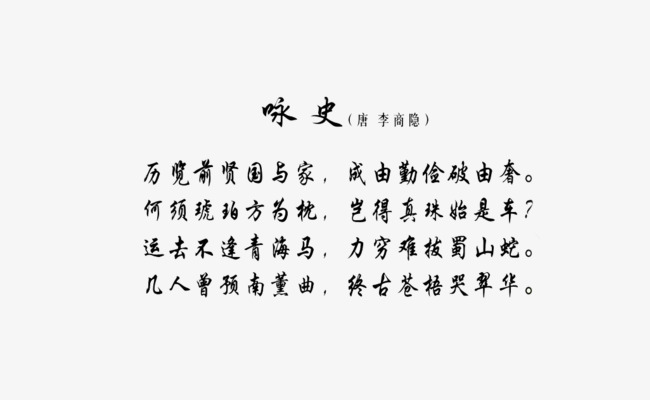 咏 史(唐 李商隐)
历览前贤国与家，成由勤俭破由奢。
何须琥珀方为枕，岂得真珠始是车？
运去不逢青海马，力穷难拔蜀山蛇。
几人曾预南薰曲，终古苍梧哭翠华。